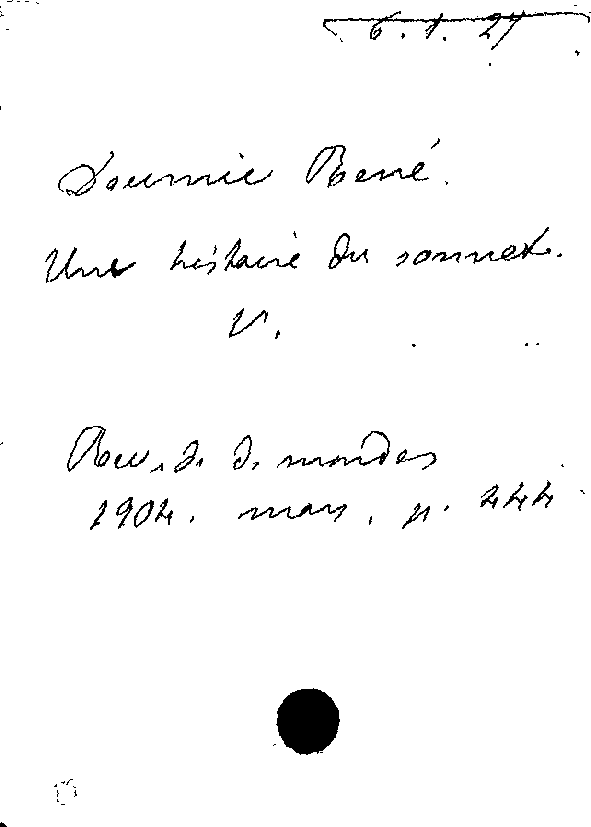 6.1.27
Doumic René.
Une histoire du sonnet.
V.
Rev. d. d. mondes
1904. mars, p. 444